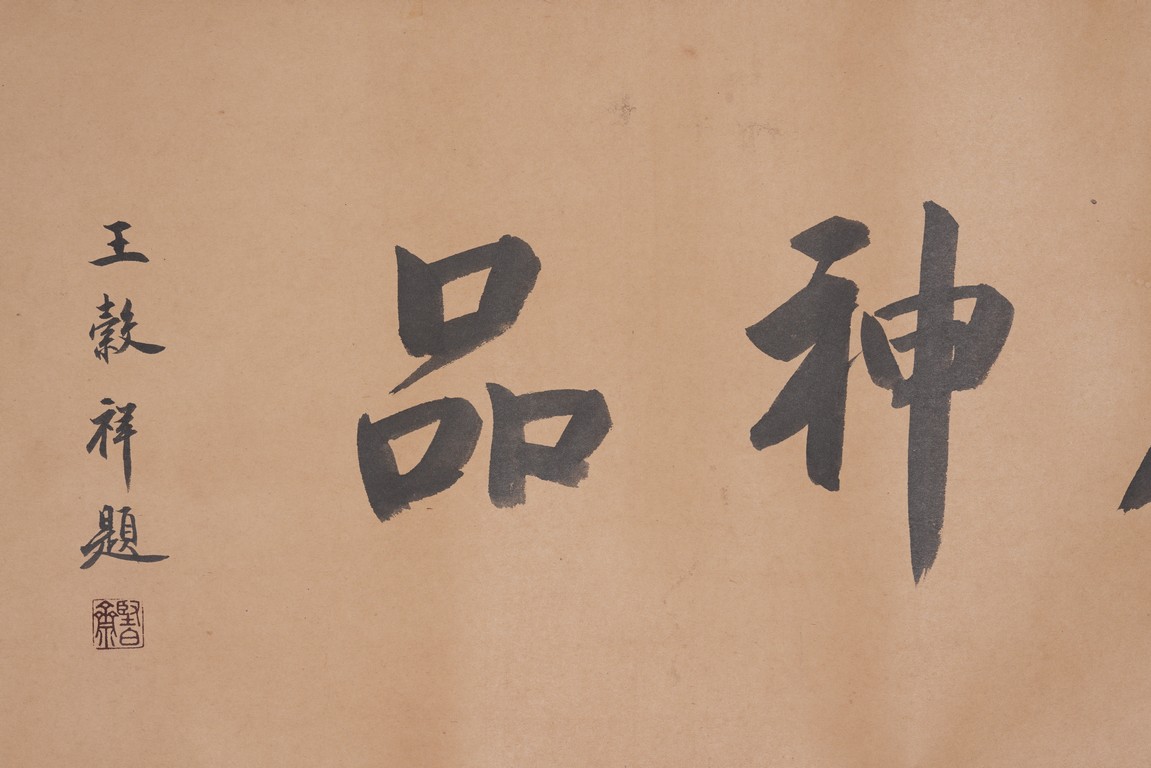 神品
王穀祥題